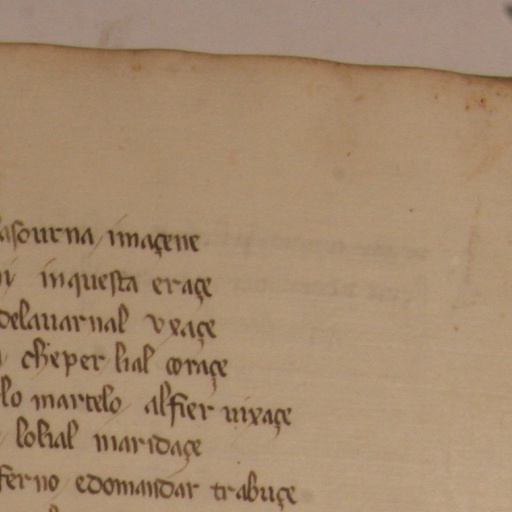 asourna imaçene
in questa eraçe
delauarnal vxaçe
cheper lial coraçe
lo martelo alfier uixaçe
lobial maridaçe
ferno edomandar trabuçe